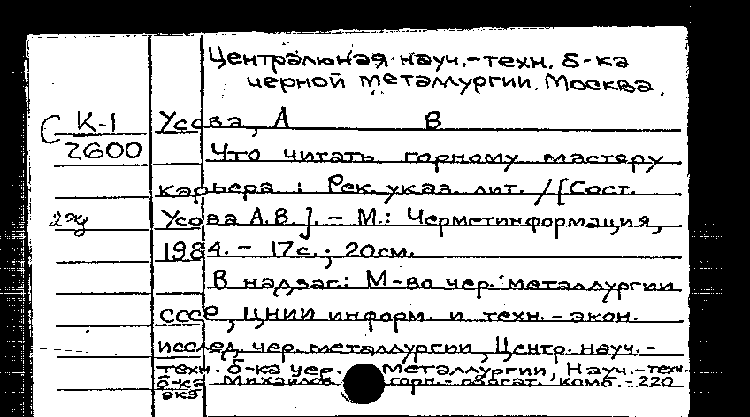 Центральная науч.-техн. б-ка
черной металлургии. Москва.
С К-1 Усова, А В
2600 Что читать горному мастеру
карьера : Рек. указ. лит. / [Сост.
2эк Усова А.В.]. - М.: Черметинформация,
1984. - 17с.; 20см.
В надзаг.: М-во чер. металлургии
СССР, ЦНИИ информ. и техн.-экон.
исслед. чер. металлургии, Центр. науч.-
техн. б-ка чер. металлургии, Науч.-техн.
б-ка Михайлов. горн.-обогат. комб. - 220
экз